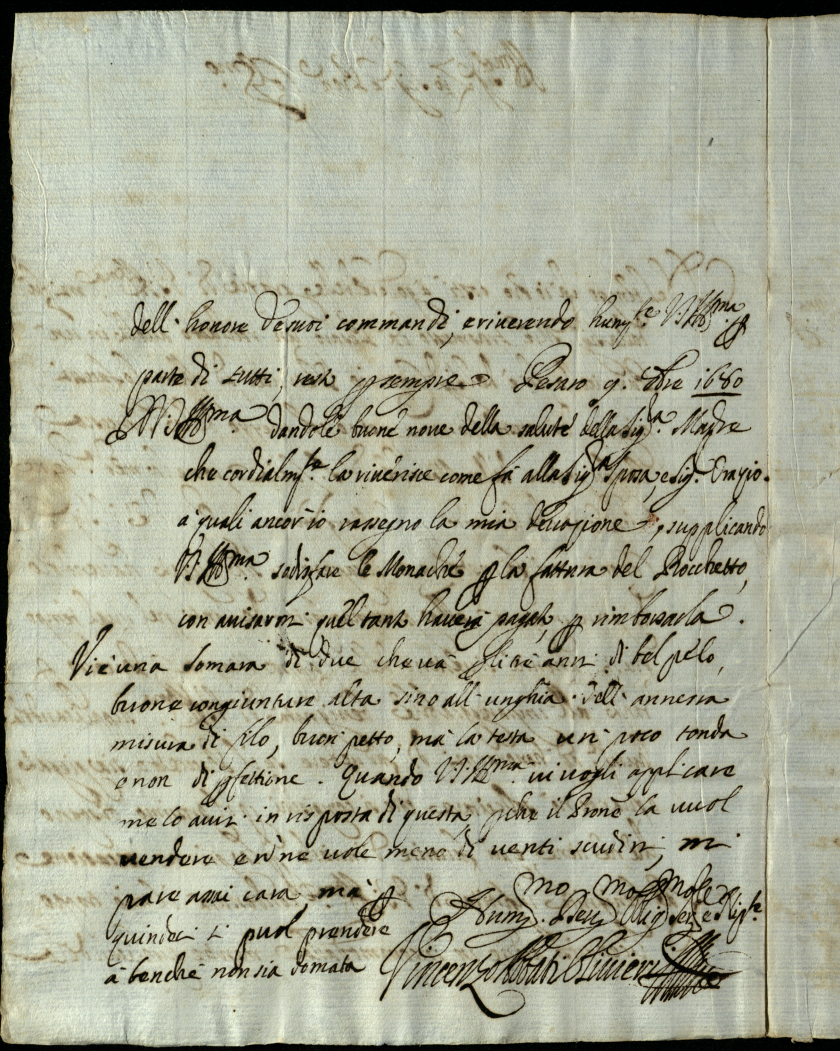 dell'honore de suoi commandi, e riverendo hum.te V.S. Ill.ma p
parte di tutti, resto p sempre Pesaro 9. Xbre 1680
V.S. Ill.ma dandole buone nove della salute della Sig.a Madre
che cordialm.te la riverisce come fà alla Sig.a Sposa, e Sig. Orazio.
a quali ancor io rassegno la mia devozione, supplicando
V.S. Ill.ma sodisfare le Monache p la fattura del Rocchetto,
con avisarmi quel tanto haverà pagato, p rimborsarla.
Vi è una somara di due che và p li tre anni di bel pelo,
buone congiunture alta sino all'unghia dell'annessa
misura di filo, buon petto, mà la testa un poco tonda
e non di pfettione. Quando V.S. Ill.ma vi vogli applicare
me lo avvisi in risposta di questa pche il Prone la vuol
vendere e n'ne vole meno di venti scudi, mi
pare assai cara, mà p
quindeci si puol prendere
a benche non sia domata
Hum.mo Dev.mo Oblig.mo Ser.e e Nip.te
Vincenzo Abbati Olivieri